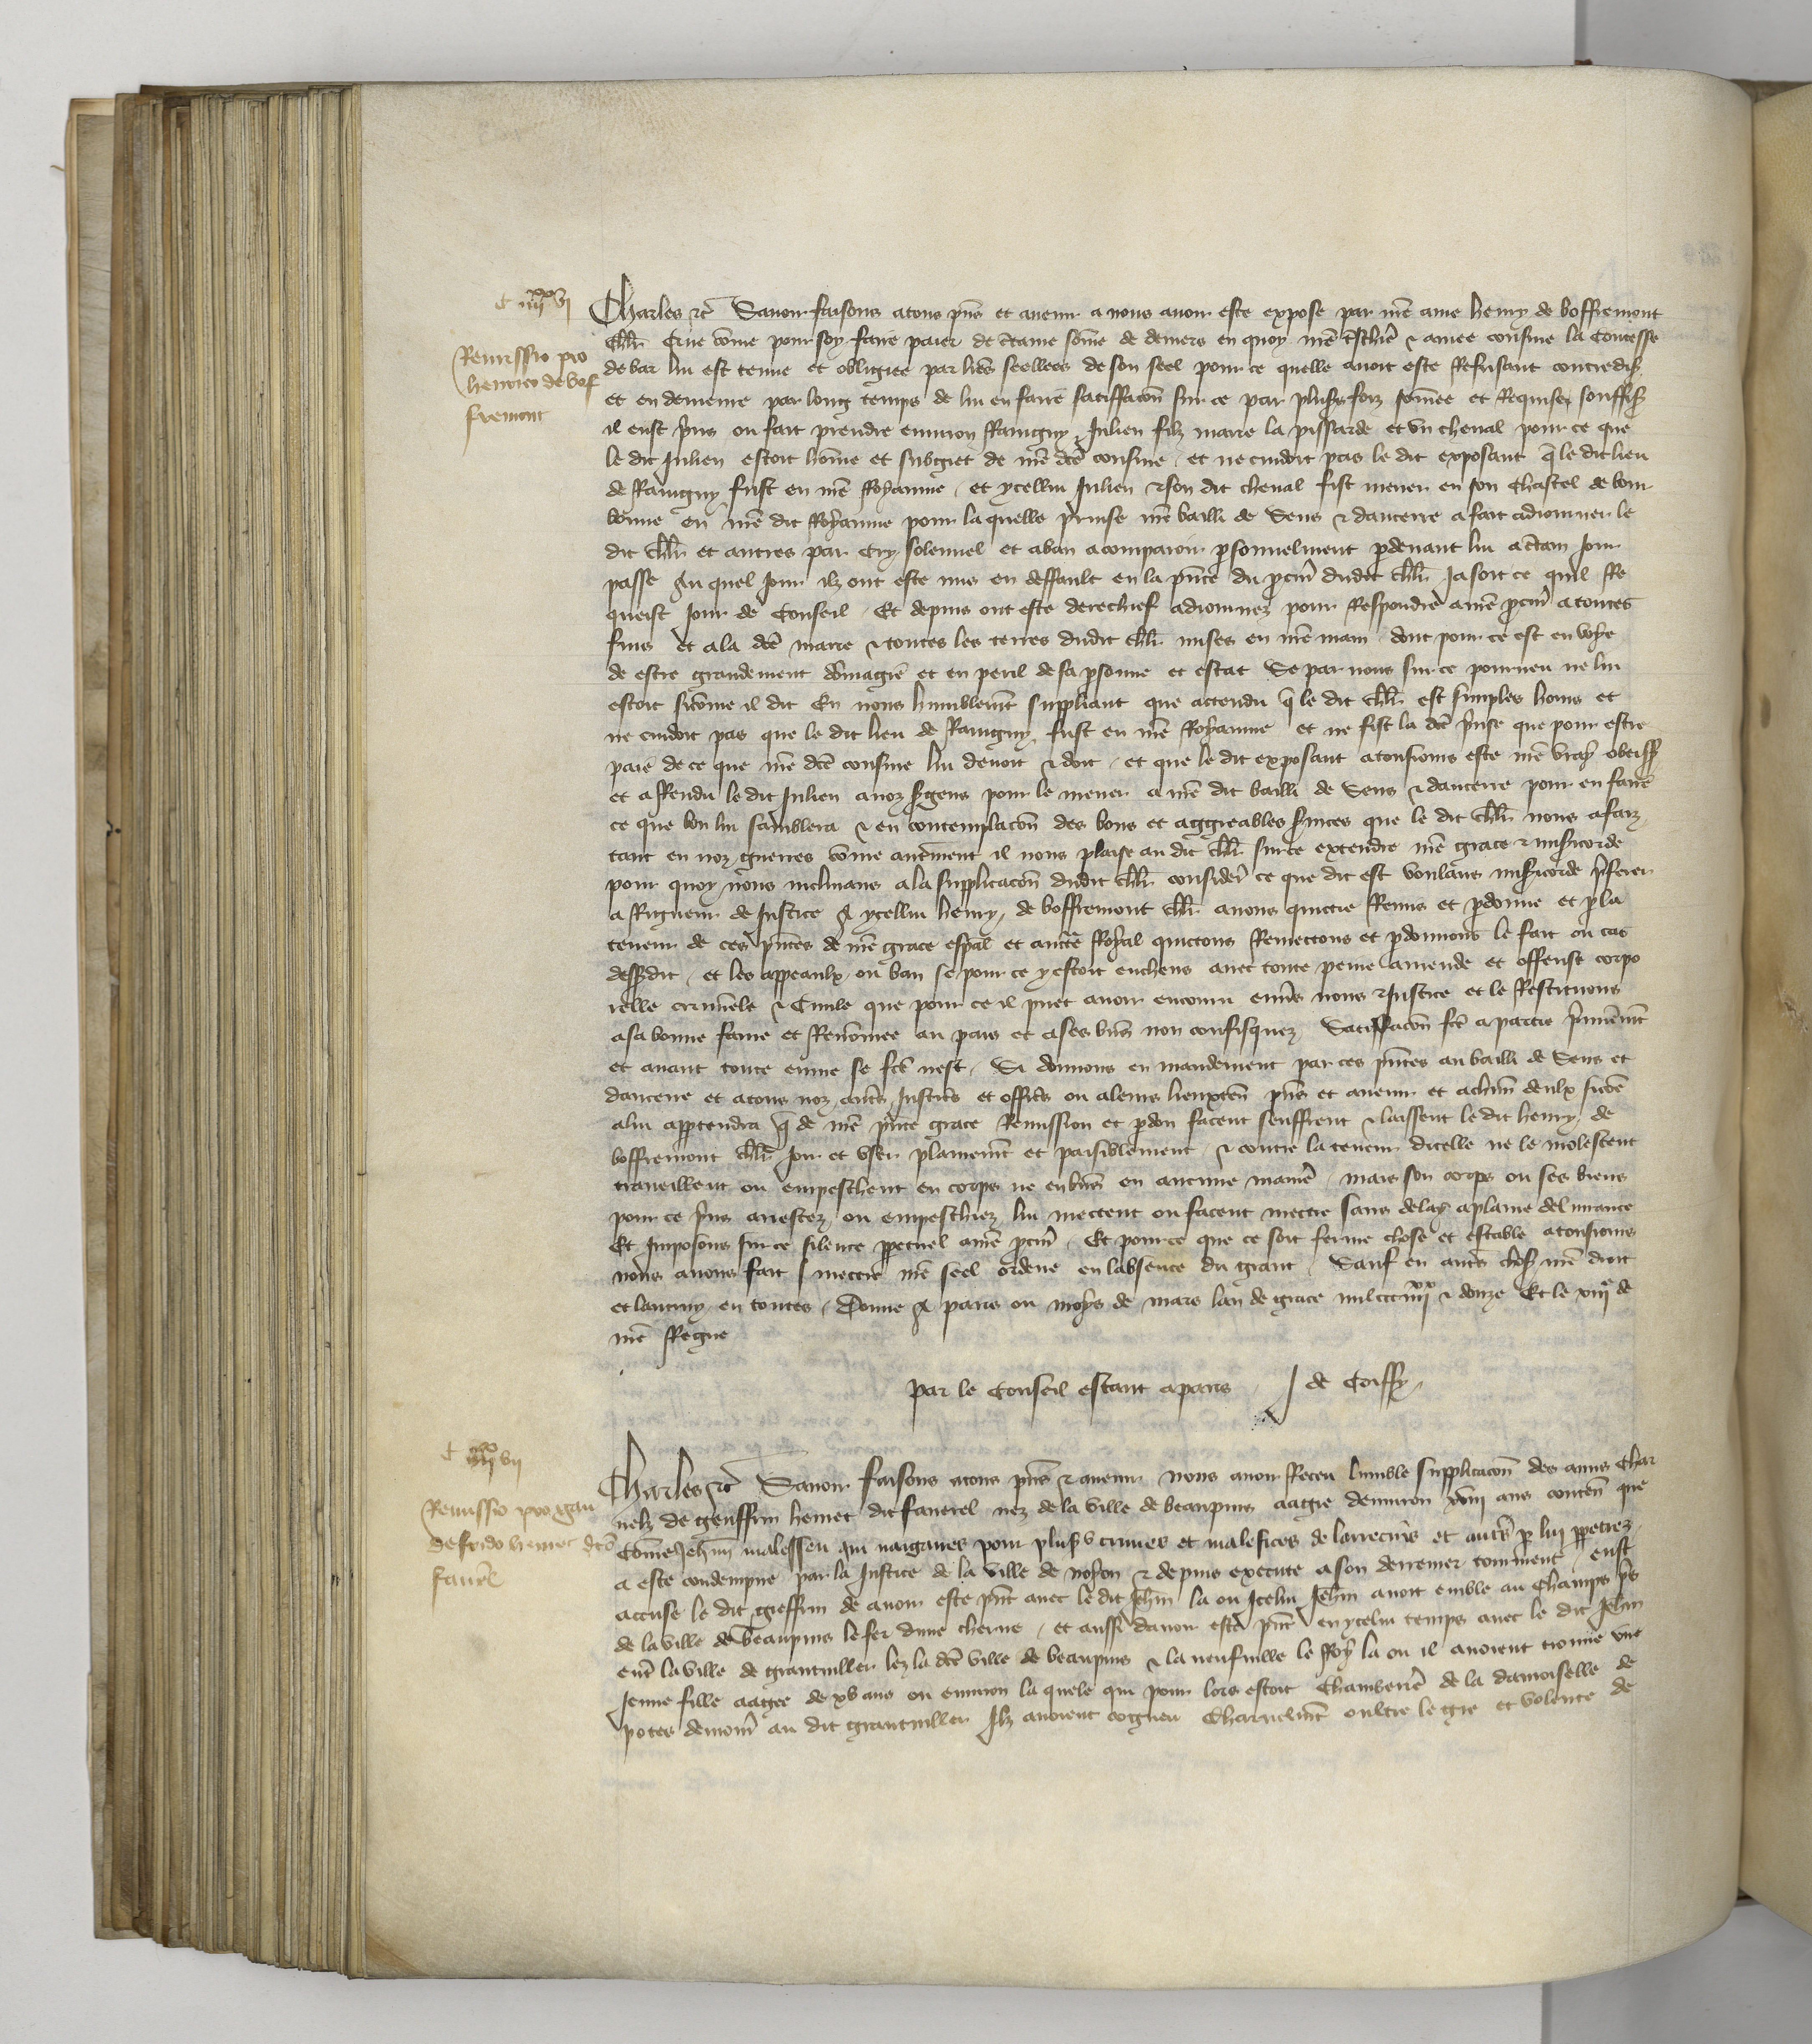 C iiiixx vi
Remissio pro
henrico de bof
fremont
Charles etc̃ Sauoir faisons a tous p̃ns et auenir a nous auoir este expose par nr̃e ame henry de boffremont
chl̃r Que cõme pour soy faire paier de c̃taine sõme de deniers en quoy nr̃e t̃schiere & amee cousine la Contesse
de bar lui est tenue et obligiee par l̃res seellees de son seel pour ce quelle auoit este Refusant contredis̃
et en demeure par long temps de lui en faire satiffacõn sur ce par plus̃s foiz sõmee et Requise souffis̃
il eust p̃ns ou fait prendre enuiron Rauigny Julien filz marie la pissarde et vn cheual pour ce que
le dit Julien estoit hõme et subgiet de nr̃e dc̃e cousine et ne cuidoit pas le dit exposant q̃ le dit lieu
de Rauigny fust en nr̃e Royaume et ycellui Julien & son dit cheual fist mener en son chastel de bour
bonne en nr̃e dit Royaume pour la quelle p̃rinse nr̃e bailli de Sens & daucerre a fait adiourner le
dit chl̃r et autres par Cry solennel et a ban a comparoir p̃sonnelment p̃deuant lui a c̃tain Jour
passe Au quel Jour ilz ont este mis en deffault en la p̃nce du p̃cur̃ dudit chl̃r Ja soit ce quil Re
queist Jour de Conseil Et depuis ont este derechief adiournez pour Respondre a nr̃e p̃cur̃ a toutes
fins et a la dc̃e marie & toutes les terres dudit chl̃r mises en nr̃e main dont pour ce est en voye
de estre grandement dõmagie et en peril de sa p̃sonne et estat Se par nous sur ce pourueu ne lui
estoit sicõme il dit En nous humblem̃t suppliant que actendu q̃ le dit chl̃r est simples homs et
ne cuidoit pas que le dit lieu de Rauigny fust en nr̃e Royaume et ne fist la dc̃e p̃rinse que pour estre
paie de ce que nr̃e dc̃e cousine lui deuoit & doit et que le dit exposant a tousiours este nr̃e vray obeiss̃
et a Rendu le dit Julien a noz s̃gens pour le mener a nr̃e dit bailli de Sens & daucerre pour en faire
ce que bon lui samblera & en contemplacõn des bons et aggreables s̃uices que le dit chl̃r nous a faiz
tant en noz guerres cõme aut̃ment il nous plaise au dit chl̃r sur ce extendre nr̃e grace & mis̃icorde
pour quoy nous inclinans a la supplicacõn dudit chl̃r consider̃ ce que dit est voulans mis̃icorde p̃ferer
a Rigueur de Justice A ycellui henry de boffremont chl̃r auons quictie Remis et p̃donne et p̃ la
teneur de ces p̃ntes de nr̃e grace esp̃al et auct̃e Royal quictons Remectons et p̃donnons le fait ou cas
dess̃dit et les appeaulx ou ban se pour ce y estoit encheus auec toute peine amende et offense corpo
relle criminele & Ciuile que pour ce il puet auoir encouru enũs nous & Justice et le Restituons
a sa bonne fame et Renõmee au pais et a ses biẽs non confisquez Satiffacõn fc̃e a partie p̃mierem̃t
et auant toute euure se fc̃e nest Si donnons en mandement par ces p̃ntes au bailli de Sens et
daucerre et a tous noz autr̃s Justic̃s et offic̃s ou a leurs lieuxten̄ p̃ns et auenir et a chũn deulx sicõe
a lui appartendra q̃ de nr̃e p̃nte grace Remission et p̃don facent seuffrent & laissent le dit henry de
boffremont chl̃r Joir et vser plainem̃t et paisiblement & contre la teneur dicelle ne le molestent
traueillent ou empeschent en corps ne en biẽs en aucune manier̃e mais son corps ou ses biens
pour ce p̃ns arrestez ou empeschiez lui mectent ou facent mectre sans delay a plaine deliurance
Et Imposons sur ce silence p̃petuel a nr̃e p̃cur̃ Et pour ce que ce soit ferme chose et estable a tousiours
nous auons fait mectre nr̃e seel ordene en labsence du grant Sauf en autr̃s chos̃ nr̃e droit
et lautruy en toutes Donne A paris ou moys de mars lan de grace mil ccc iiiixx & douze Et le xiiie de
nr̃e Regne
par le Conseil estant a paris J de Coiffy
C iiiixx vii
Remissio pro gau
defrido hemet dc̃o
fauer̃l
Charles etc̃ Sauoir faisons a tous p̃ns & auenir nous auoir Receu lumble supplicacõn des amis Char
nelz de geuffrin hemet dit fauerel nez de la ville de beaupuis aagie denuiron xviii ans conten̄ que
Cõme Jeh̃n malesseu qui nargaires pour plus̃s crimes et malefices de larrecins et autr̃s p̃ lui p̃petrez
a este condempne par la Justice de la ville de noyon & depuis execute a son derrenier tourment eust
accuse le dit gieffrin de auoir este p̃nt auec le dit Jeh̃n la ou Icelui Jeh̃n auoit emble au champs p̃s
de la ville de beaupuis le fer dune cherue et aussi dauoir este p̃nt en ycelui temps auec le dit Jeh̃n
entr̃e la ville de grantuiller lez la dc̃e ville de beaupuis & la neufuille le Roy la ou il auoient trouue vne
Jeune fille aagee de xv ans ou enuiron la quele qui pour lors estoit Chamberier̃e de la damoiselle de
potes demour̃ au dit grantuiller Ilz auoient cogneu Charnelm̃t oultre le gre et volente de